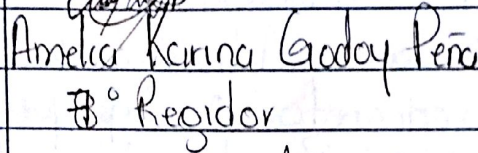 Amelia Karina Godoy Peña
8° Regidor